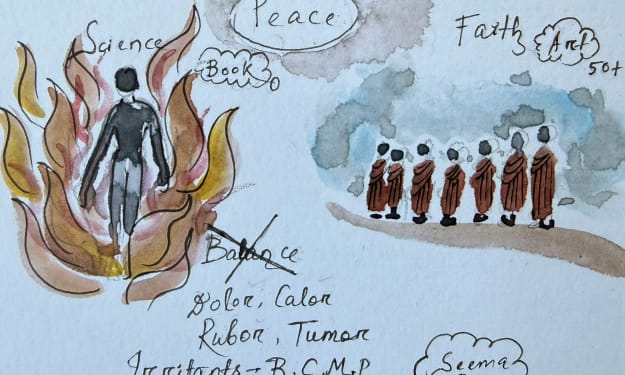 Peace
Science
Book
Faith
Art
50+
Balance
Dolor, Calor
Rubor, Tumor
Irritants - B.C.M.P
Seema